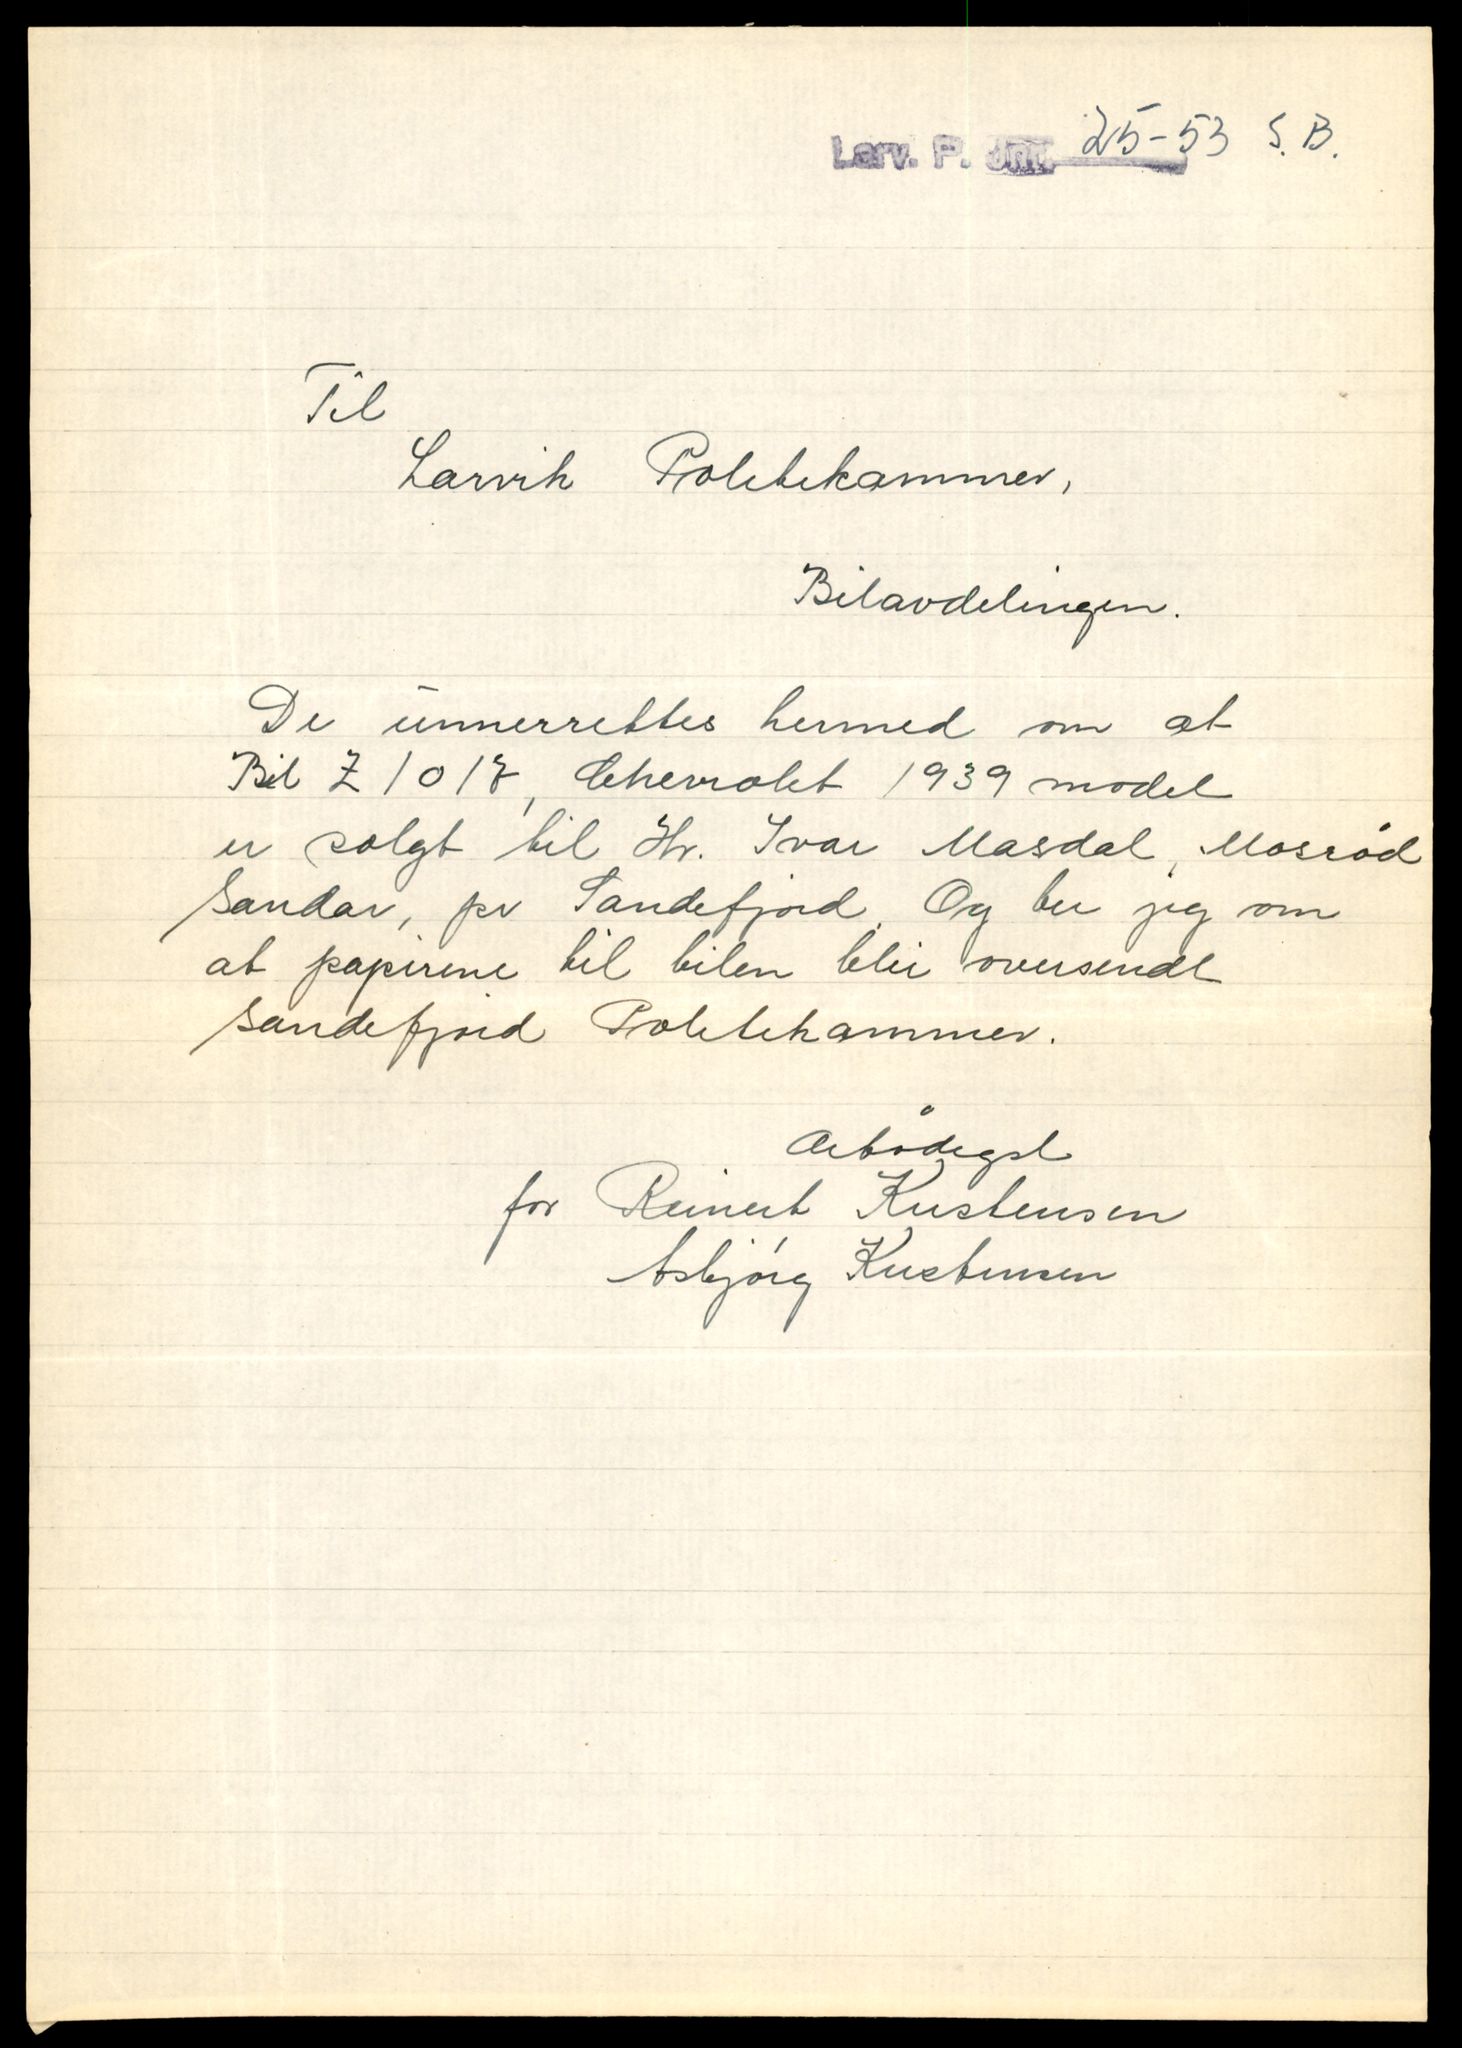 Larv. P. Jnr. 25-53 S.B.
Til
Larvik Politikammer,
Bilavdelingen.
De unnerrettes hermed om at
Bil Z 1018, Chevrolet 1939 model
er solgt til Hr. Ivar Masdal, Mosrød
Sandar, pr Sandefjord. Og ber jeg om
at papirene til bilen blir oversendt
Sandefjord Politikammer.
Ærbødigst
for Reinert Kristensen
Asbjørg Kristensen